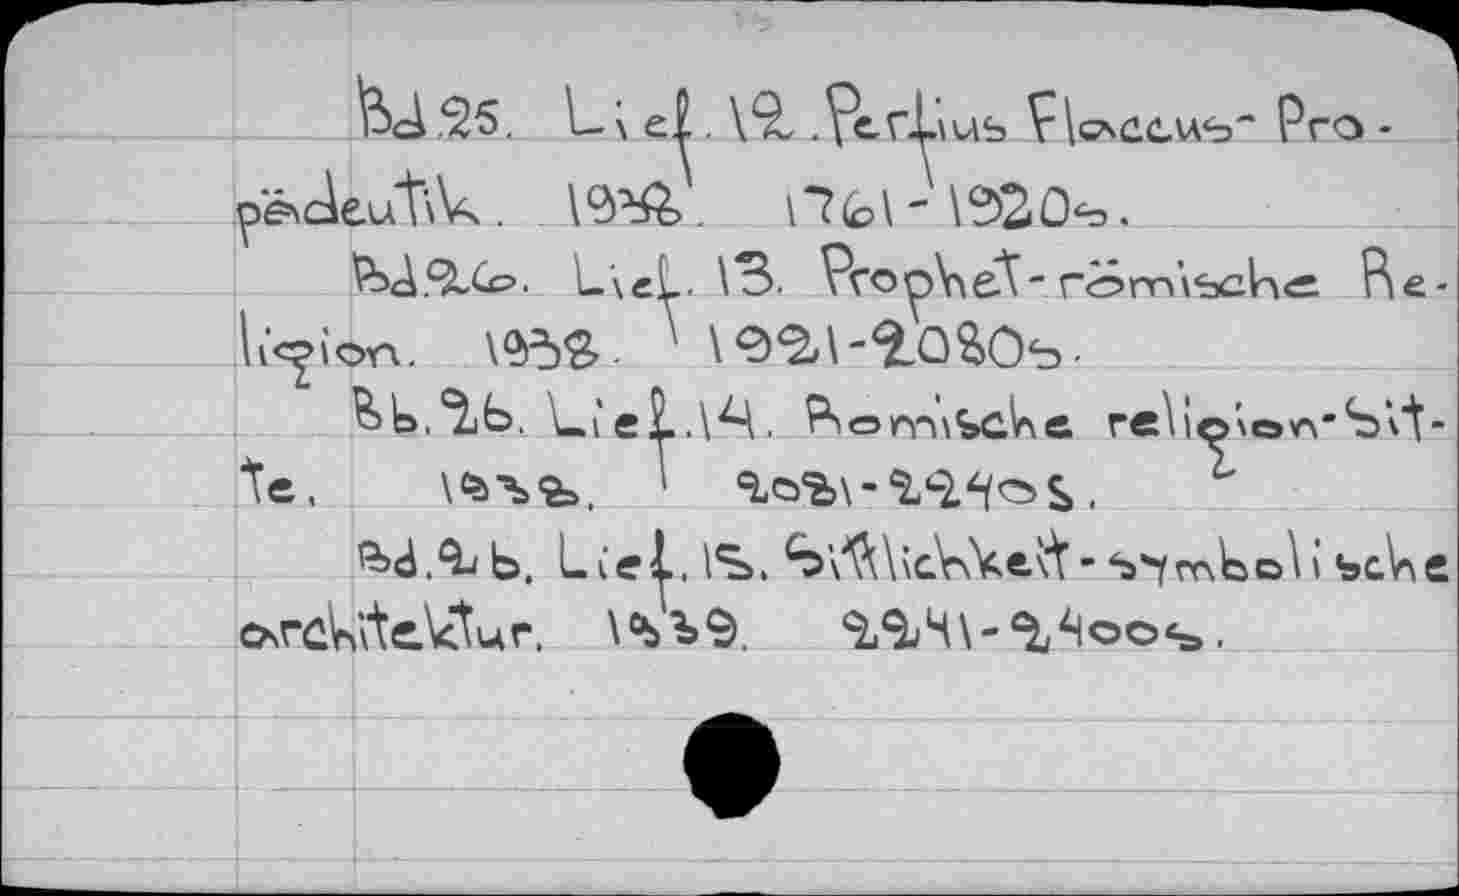 Bd.25. Lief. 12. Persius Flaccus - Pro-
pädeutik. 1938. 1761-1920s.
Bd.26. Lief. 13. Prophet - römische Re-
ligion. 1938. 1921-2080s.
Bb.26. Lief.14. Romische religion-Sit-
te. 1938. 2081-2240s.
Bd.26. Lief. 15. Sittlichkeit - symbolische
architektur. 1939. 2241-2400s.